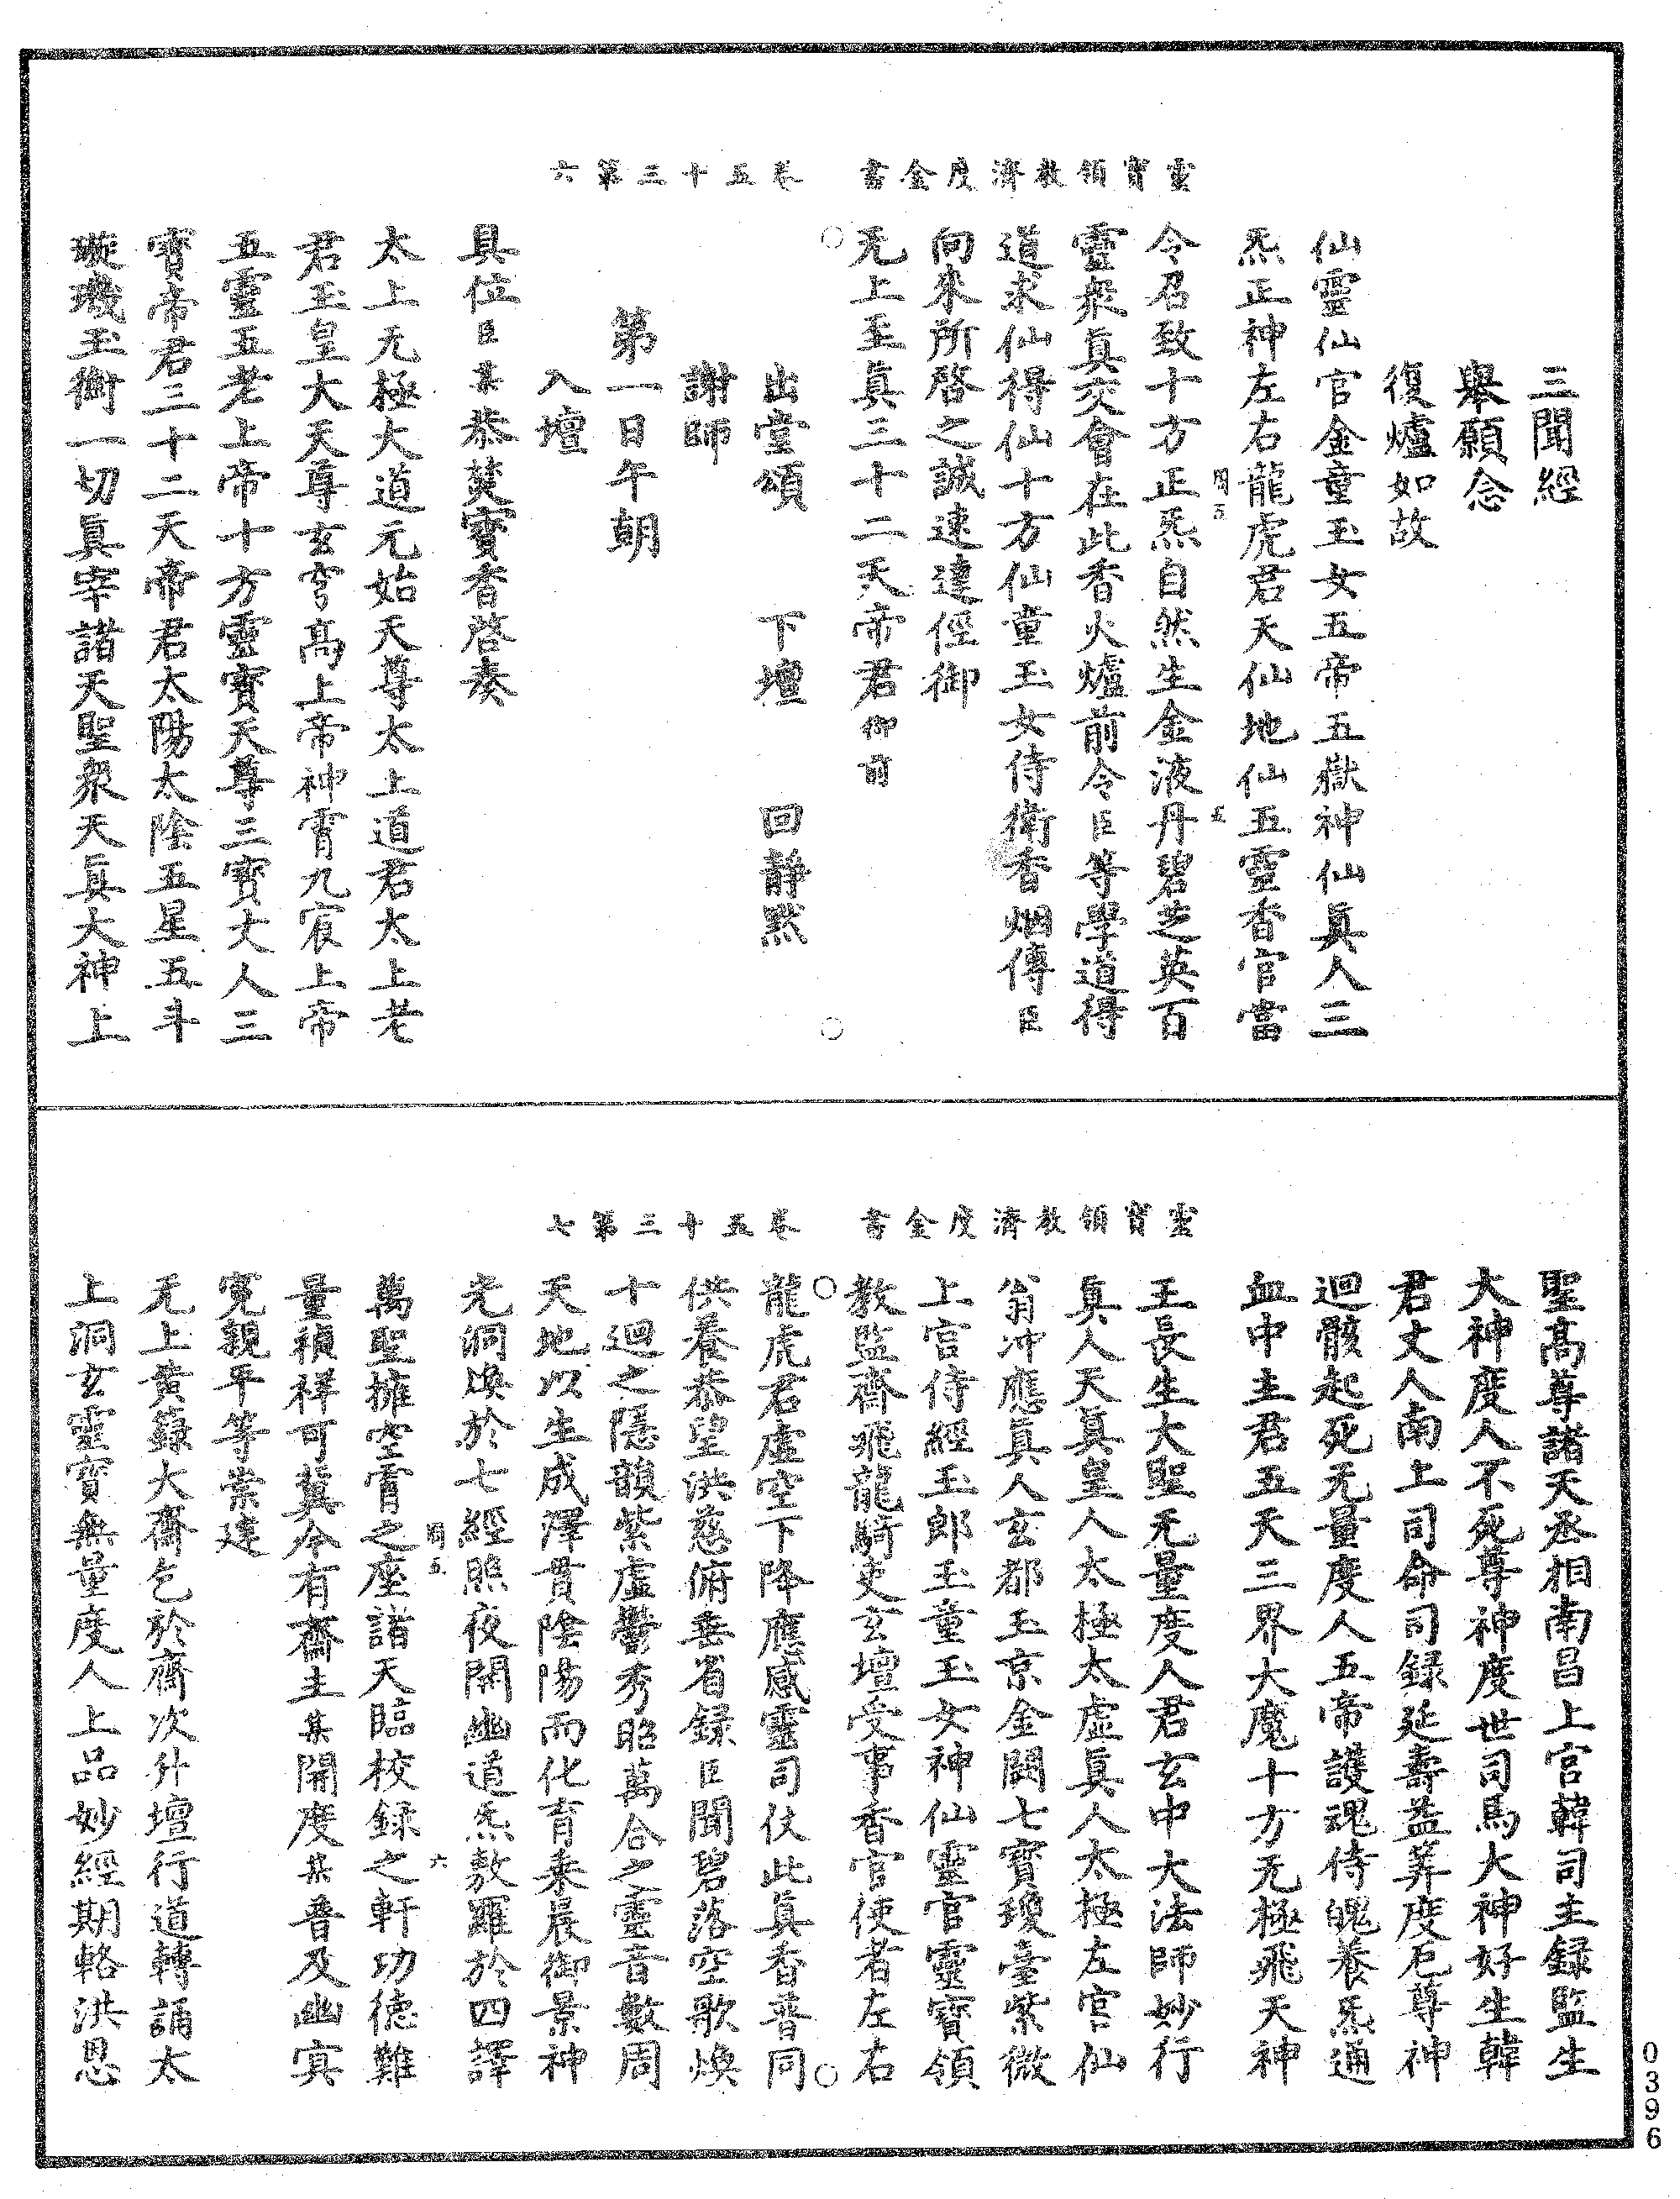 靈寶領教濟度金書 卷五十三第六
三聞經
舉願念
復爐如故
仙靈仙官金童玉女五帝五嶽神仙眞人三
炁正神左右龍虎君天仙地仙五靈香官當
令召致十方正炁自然生金液丹碧芝英百
靈衆眞交會在此香火爐前令臣等學道得
道求仙得仙十方仙童玉女侍衛香烟傳臣
向來所啓之誠速達徑御
无上至眞三十二天帝君御前
出堂頌 下壇 回靜默
謝師
第一日午朝
入壇
具位臣某恭焚寶香啓奏
太上无極大道元始天尊太上道君太上老
君玉皇大天尊玄穹高上帝神霄九宸上帝
五靈五老上帝十方靈寶天尊三寶丈人三
寶帝君三十二天帝君太陽太陰五星五斗
璇璣玉衡一切眞宰諸天聖衆天眞大神上
靈寶領教濟度金書 卷五十三第七
聖高尊諸天丞相南昌上宫韓司主録監生
大神度人不死尊神度世司馬大神好生韓
君丈人南上司命司録延壽益筭度厄尊神
迴骸起死无量度人五帝護魂侍魄養炁通
血中主君五天三界大魔十方无極飛天神
王長生大聖无量度人君玄中大法師妙行
眞人天眞皇人太極太虛眞人太極左宫仙
翁冲應眞人玄都玉京金闕七寶瓊臺紫微
上宫侍經玉郎玉童玉女神仙靈官靈寶領
教監齋飛龍騎吏玄壇受事香官使者左右
龍虎君虛空下降應感靈司仗此眞香普同
供養恭望洪慈俯垂省録臣聞碧落空歌煥
十迴之隱韻紫虛鬱秀昭萬合之靈音數周
天地以生成澤貫陰陽而化育来晨御景神
光洞煥於七經照夜開幽道炁敷羅於四譯
萬聖擁空霄之座諸天臨校録之軒功德難
量禎祥可冀今有齋主某開度某普及幽冥
寃親平等崇建
无上黄籙大齋乞於齋次升壇行道轉誦太
上洞玄靈寶無量度人上品妙經期輅洪恩
0396